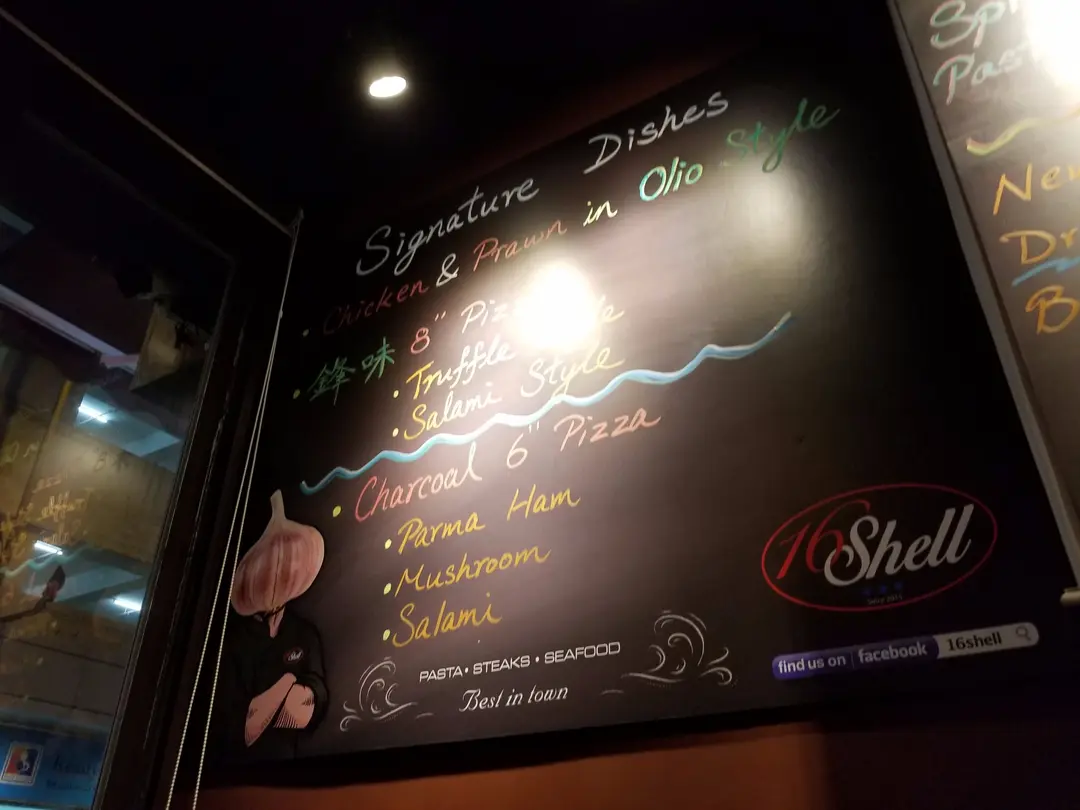 Signature Dishes
• Chicken & Prawn in Olio Style
• 鋒味 8"
• Truffle
• Salami Style
• Charcoal 6" Pizza
• Parma Ham
• Mushroom
• Salami
PASTA • STEAKS • SEAFOOD
Best in town
16Shell
find us on facebook 16shell